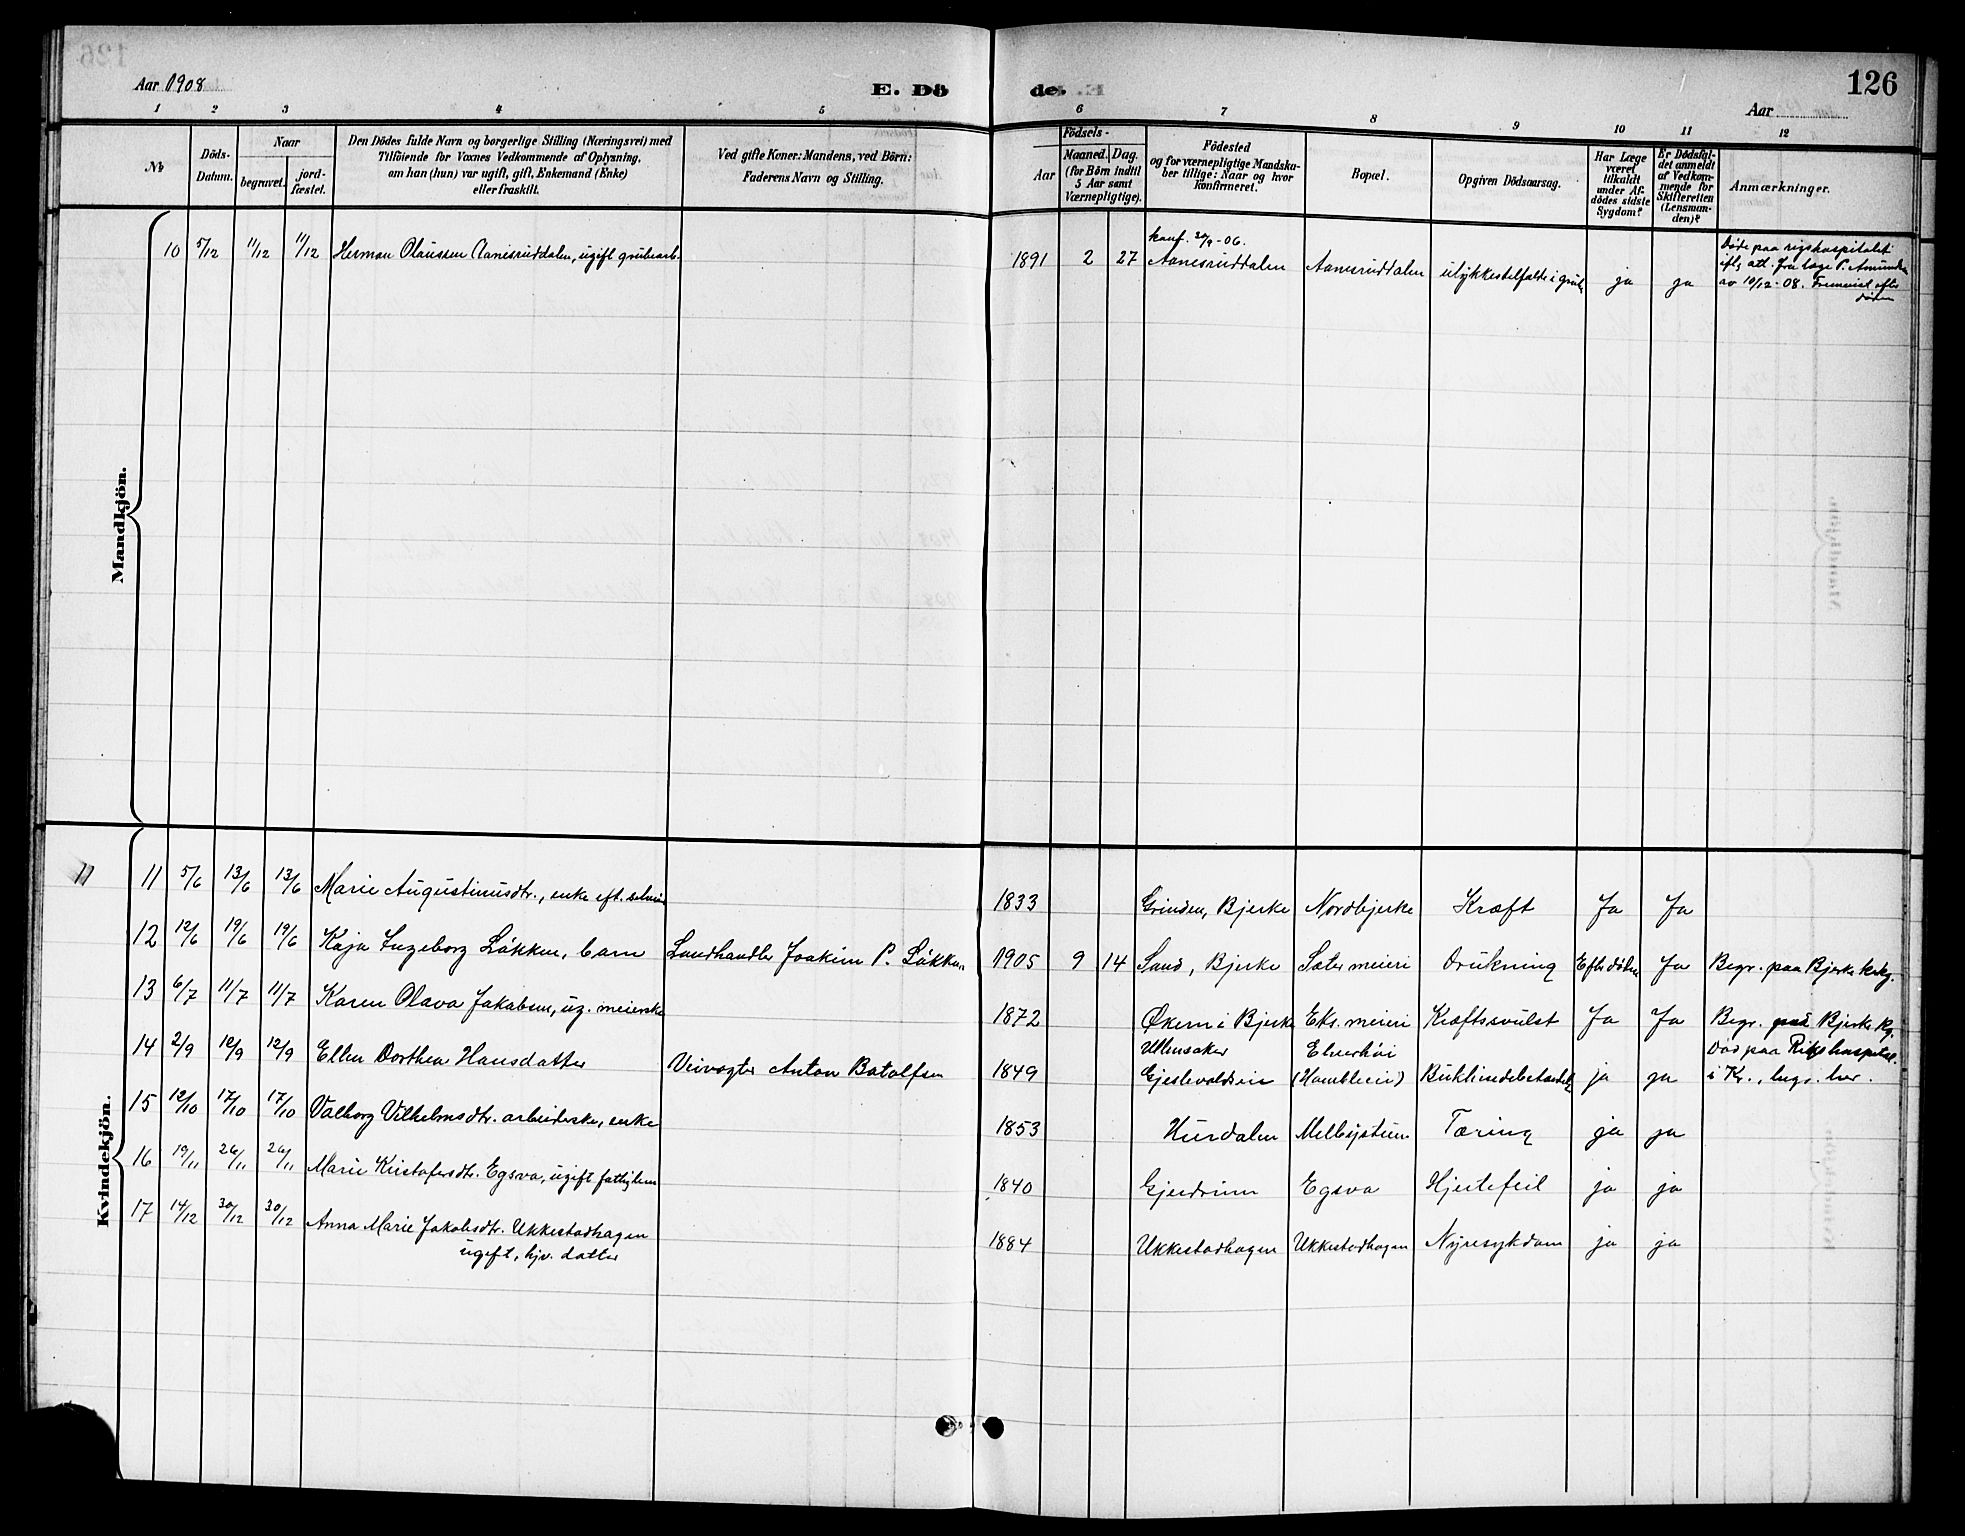 126
Aar 1908
E. Dö
de.
Aar
1 2 3 4 5 6 7 8 9 10 11 12
№
Döds-
Datum.
Naar
begravet.
jord-
fæstet.
Den Dödes fulde Navn og borgerlige Stilling (Næringsvei) med
Tilföiende for Voxnes Vedkommende af Oplysning,
om han (hun) var ugift, gift, Enkemand (Enke)
eller fraskilt.
Ved gifte Koner: Mandens, ved Börn:
Faderens Navn og Stilling.
Födsels-
Aar
Maaned. Dag.
(for Börn indtil
5 Aar samt
Værnepligtige).
Födested
og for værnepligtige Mandska-
ber tillige: Naar og hvor
konfirmeret.
Bopæl.
Opgiven Dödsaarsag.
Har Læge
været
tilkaldt
under Af-
dödes sidste
Sygdom?
Er Dödsfal-
det anmeldt
af Vedkom-
mende for
Skifteretten
(Lensman-
den)?
Anmærkninger.
Mandkjön.
konf. 30/9-06.
10 5/12 11/12 11/12 Herman Olaussen Aanesruddalen, ugift grubearb. 1891 2 27 Aanesruddalen Aanesruddalen ulykkestilfælde i grube ja ja
Döde paa rigshospitalet
iflg att. fra læge P.
av 10/12-08. efter
döden
Kvindekjön.
11
11 5/6 13/6 13/6 Marie Augustinusdtr., enke eft. 1833 Grinden, Bjerke Nordbjerke Kræft Ja Ja
12 12/6 19/6 19/6 Kaja Ingeborg Løkken, barn Landhandler Joakim P. Løkken 1905 9 14 Sand, Bjerke Sæter meieri Drukning Efter döden Ja Begr. paa Bjerke kirkg.
13 6/7 11/7 11/7 Karen Olava Jakobsen, ug. meierske 1872 Økern i Bjerke Eks. meieri Kræftsvulst Ja Ja Begr. paa Bjerke kg.
14 2/9 12/9 12/9 Ellen Dorthea Hansdatter Veivogter Anton Botolfsen 1849 Ullensaker
Gjestevoldseie Elverhöi
ja ja Död paa Rikshospital
i Kr., begr. her.
15 12/10 17/10 17/10 Valborg Vilhelmsdtr. arbeiderske, enke 1853 Hurdalen Melbystuen Tæring ja ja
16 19/11 26/11 26/11 Marie Kristofersdtr. Egsva, ugift fattiglem 1840 Gjerdrum Egsva Hjertefeil ja ja
17 14/12 30/12 30/12 Anna Marie Jakobsdtr. Ukkestadhagen
ugift, hjv. datter 1884 Ukkestadhagen Ukkestadhagen Nyresykdom ja ja